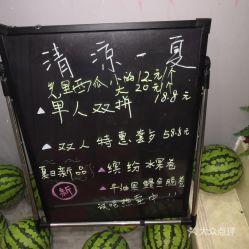 清凉一夏
米里西瓜 小的12元/个
大 20元/个
单人双拼 18.8元
双人特惠套房 58.8元
夏日新品
缤纷水果卷
新
牛油果鳗鱼脆卷
夜宵热卖中!!
大众点评